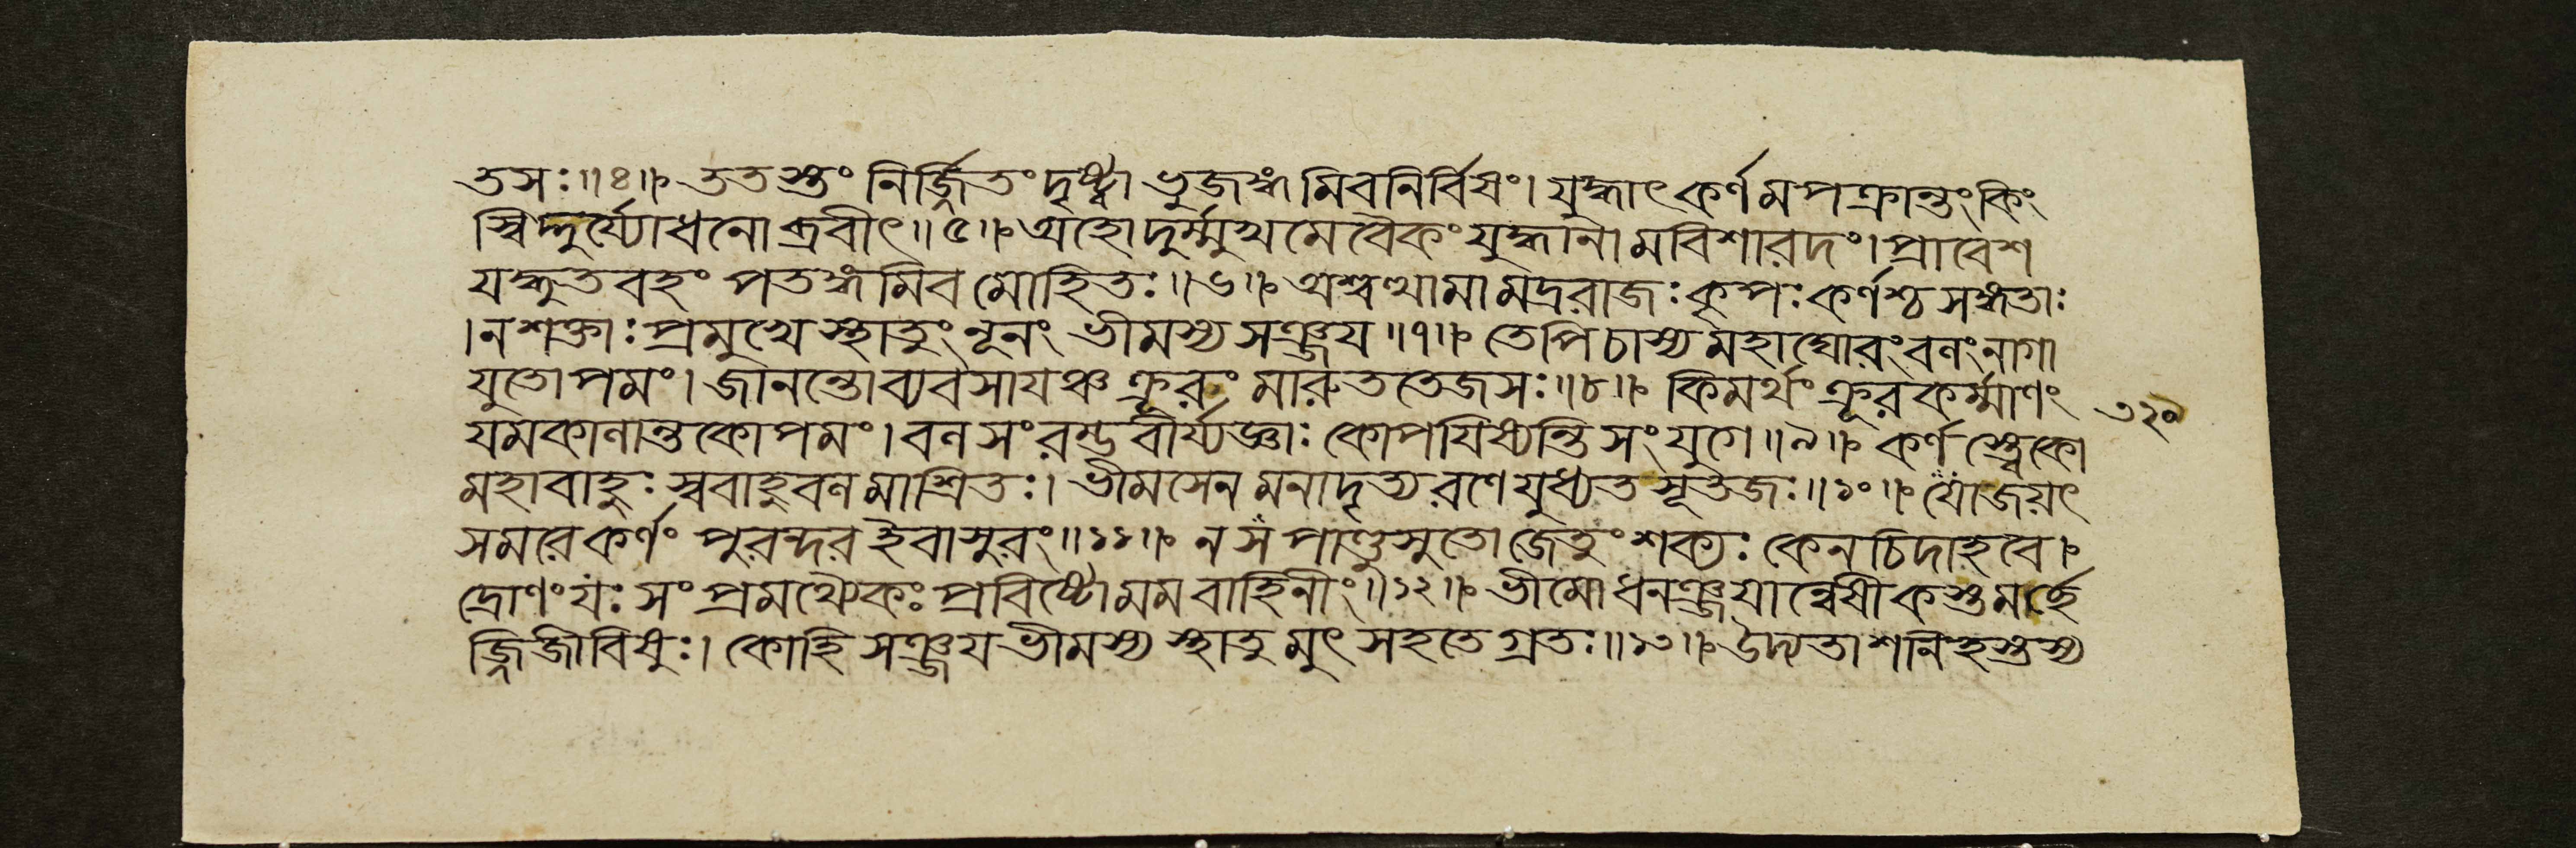 তসঃ॥৪॥ ততস্তং নির্জ্জিতং দৃষ্ট্বা ভুজঙ্গমিবনির্বিষং। যুদ্ধাৎ কর্ণমপক্রান্তং কিং
স্বিদ্দুর্য্যোধনো ব্রবীৎ॥৫॥ অহোদুর্ম্মুখমেবৈকং যুদ্ধানামবিশারদং। প্রাবেশ
যদ্ধুতবহং পতঙ্গমিব মোহিতঃ॥৬॥ অশ্বত্থামামদ্ররাজঃ কৃপঃ কর্ণশ্চ সঙ্গতাঃ
।নশক্তাঃ প্রমুখে স্থাতুং নূনং ভীমস্য সঞ্জয॥৭॥ তেপি চাস্য মহাঘোরং বলং নাগা
যুতোপমং। জানন্তো ব্যবসাযঞ্চ ক্রূরং মারুততেজসঃ॥৮॥ কিমর্থং ক্রূরকর্ম্মাণং
যমকালান্তকোপমং। বলসংরম্ভবীর্য্যজ্ঞাঃ কোপযিষ্যন্তি সংযুগে॥৯॥ কর্ণস্ত্বেকো
মহাবাহুঃ স্ববাহুবলমাশ্রিতঃ। ভীমসেনমনাদৃত্য রণে যুধ্যত সূতজঃ॥১০॥ যোজয়ৎ
সমরে কর্ণং পুরন্দর ইবাসুরং॥১১॥ ন স পাণ্ডুসুতো জেতুং শক্যঃ কেনচিদাহবে।
দ্রোণং যঃ সংপ্রমথ্যৈকঃ প্রবিষ্টো মম বাহিনীং॥১২॥ ভীমো ধনঞ্জয়ান্বেষী কস্তমর্ছে
জ্জিজীবিষুঃ। কোহি সঞ্জয ভীমস্য স্থাতুমুৎসহতেগ্রতঃ॥১৩॥ উদ্যতাশনিহস্তস্য
৩২০